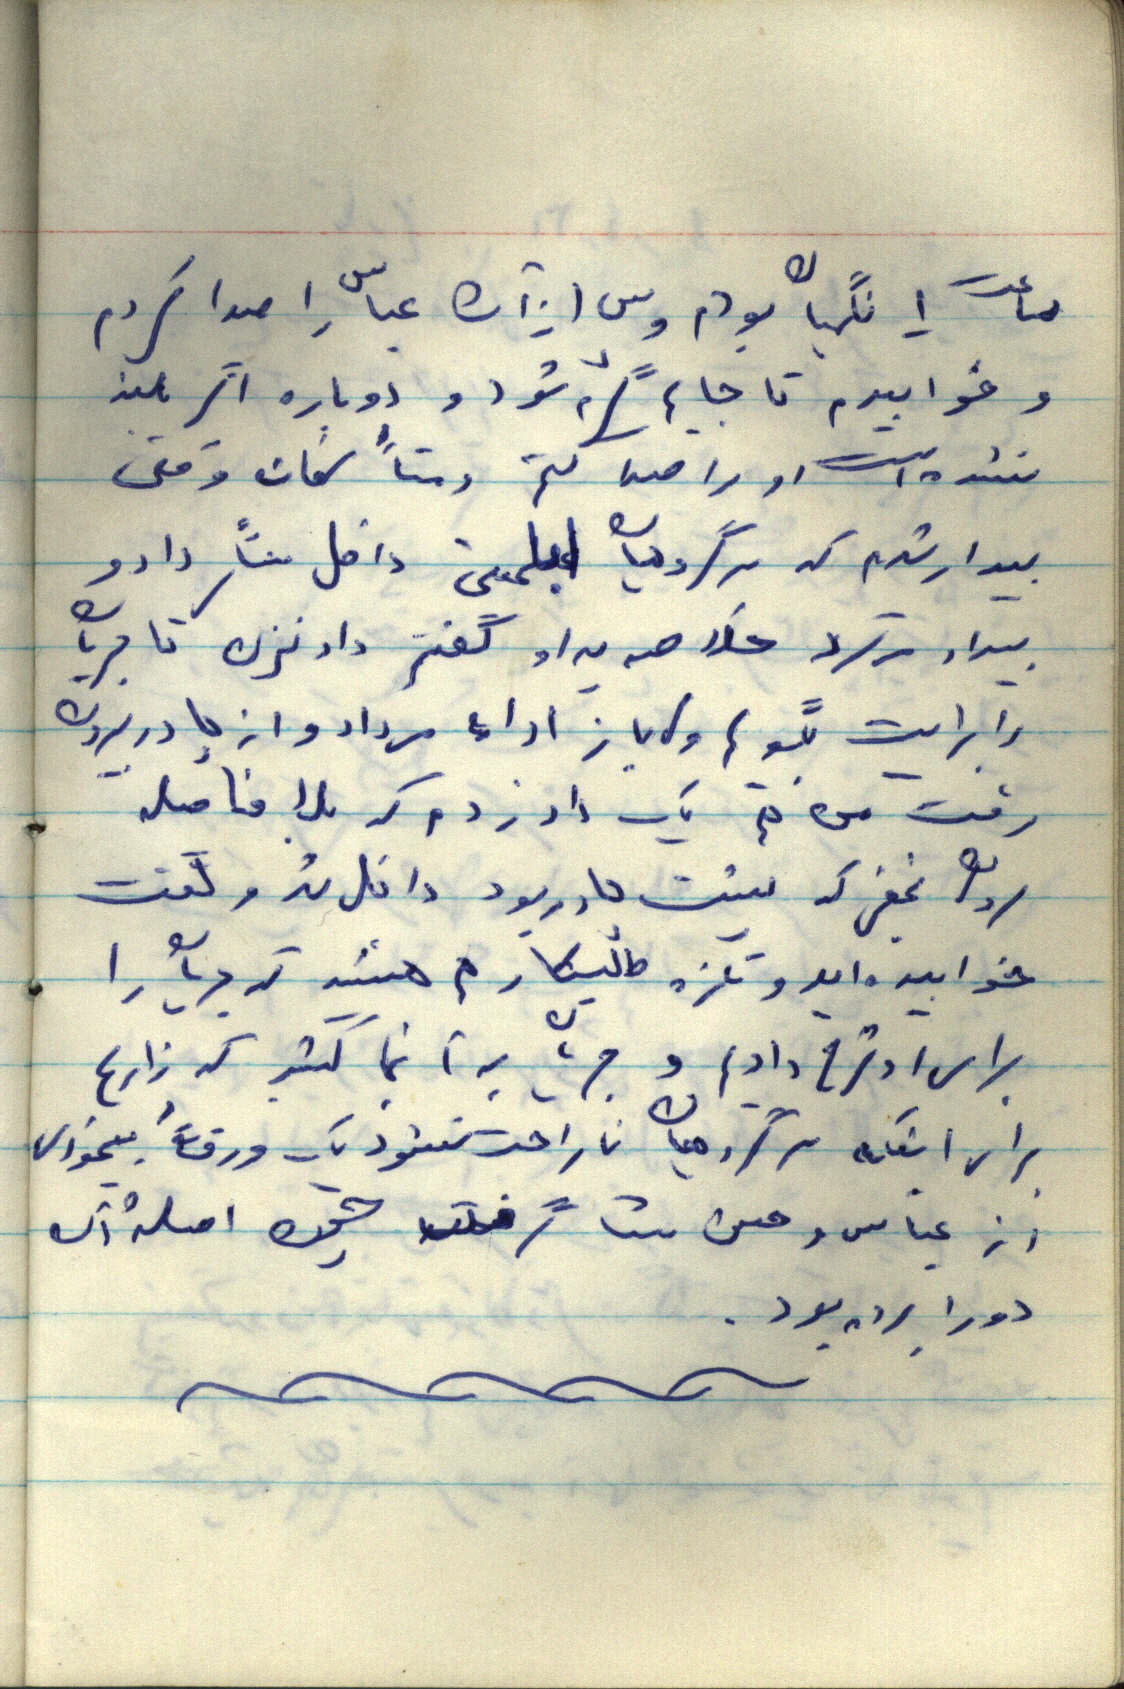 ساعت ۱ نگهبان بودم و پس از آن عباس را صدا کردم
و خوابیدم تا جایم گرم شود و دوباره اگر بلند
نشده است او را صدا کنم وقتی
بیدار شدم که سر گروهبان داخل شد داد و
بیداد می‌کرد خلاصه به او گفتم داد نزن تا جریان
را برایت بگویم ولی باز ادامه می‌داد و از چادر بیرون
رفت من هم یک داد زدم که بلا فاصله
سروان نجفی که پشت چادر بود داخل شد و گفت
خوابیده‌اید و تازه طلبکار هم هستید که جریان را
برای او شرح دادیم و جریان به آنجا کشید که
برای اینکه سر گروهبان ناراحت نشود یک ورقه بیخوابی
از عباس و حسن آن
دو را برده بود.